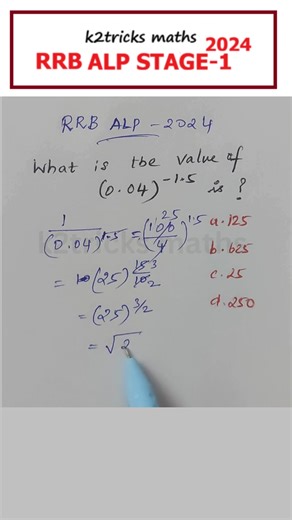 k2tricks maths
2024
RRB ALP STAGE-1
RRB ALP - 2024
What is the value of
(0.04)^-1.5 is ?
1/(0.04)^1.5 = (100/4)^1.5 25
a. 125
b. 625
c. 25
d. 250
= (25)^15/10 3/2
= (25)^3/2
= √2
k2tricks maths